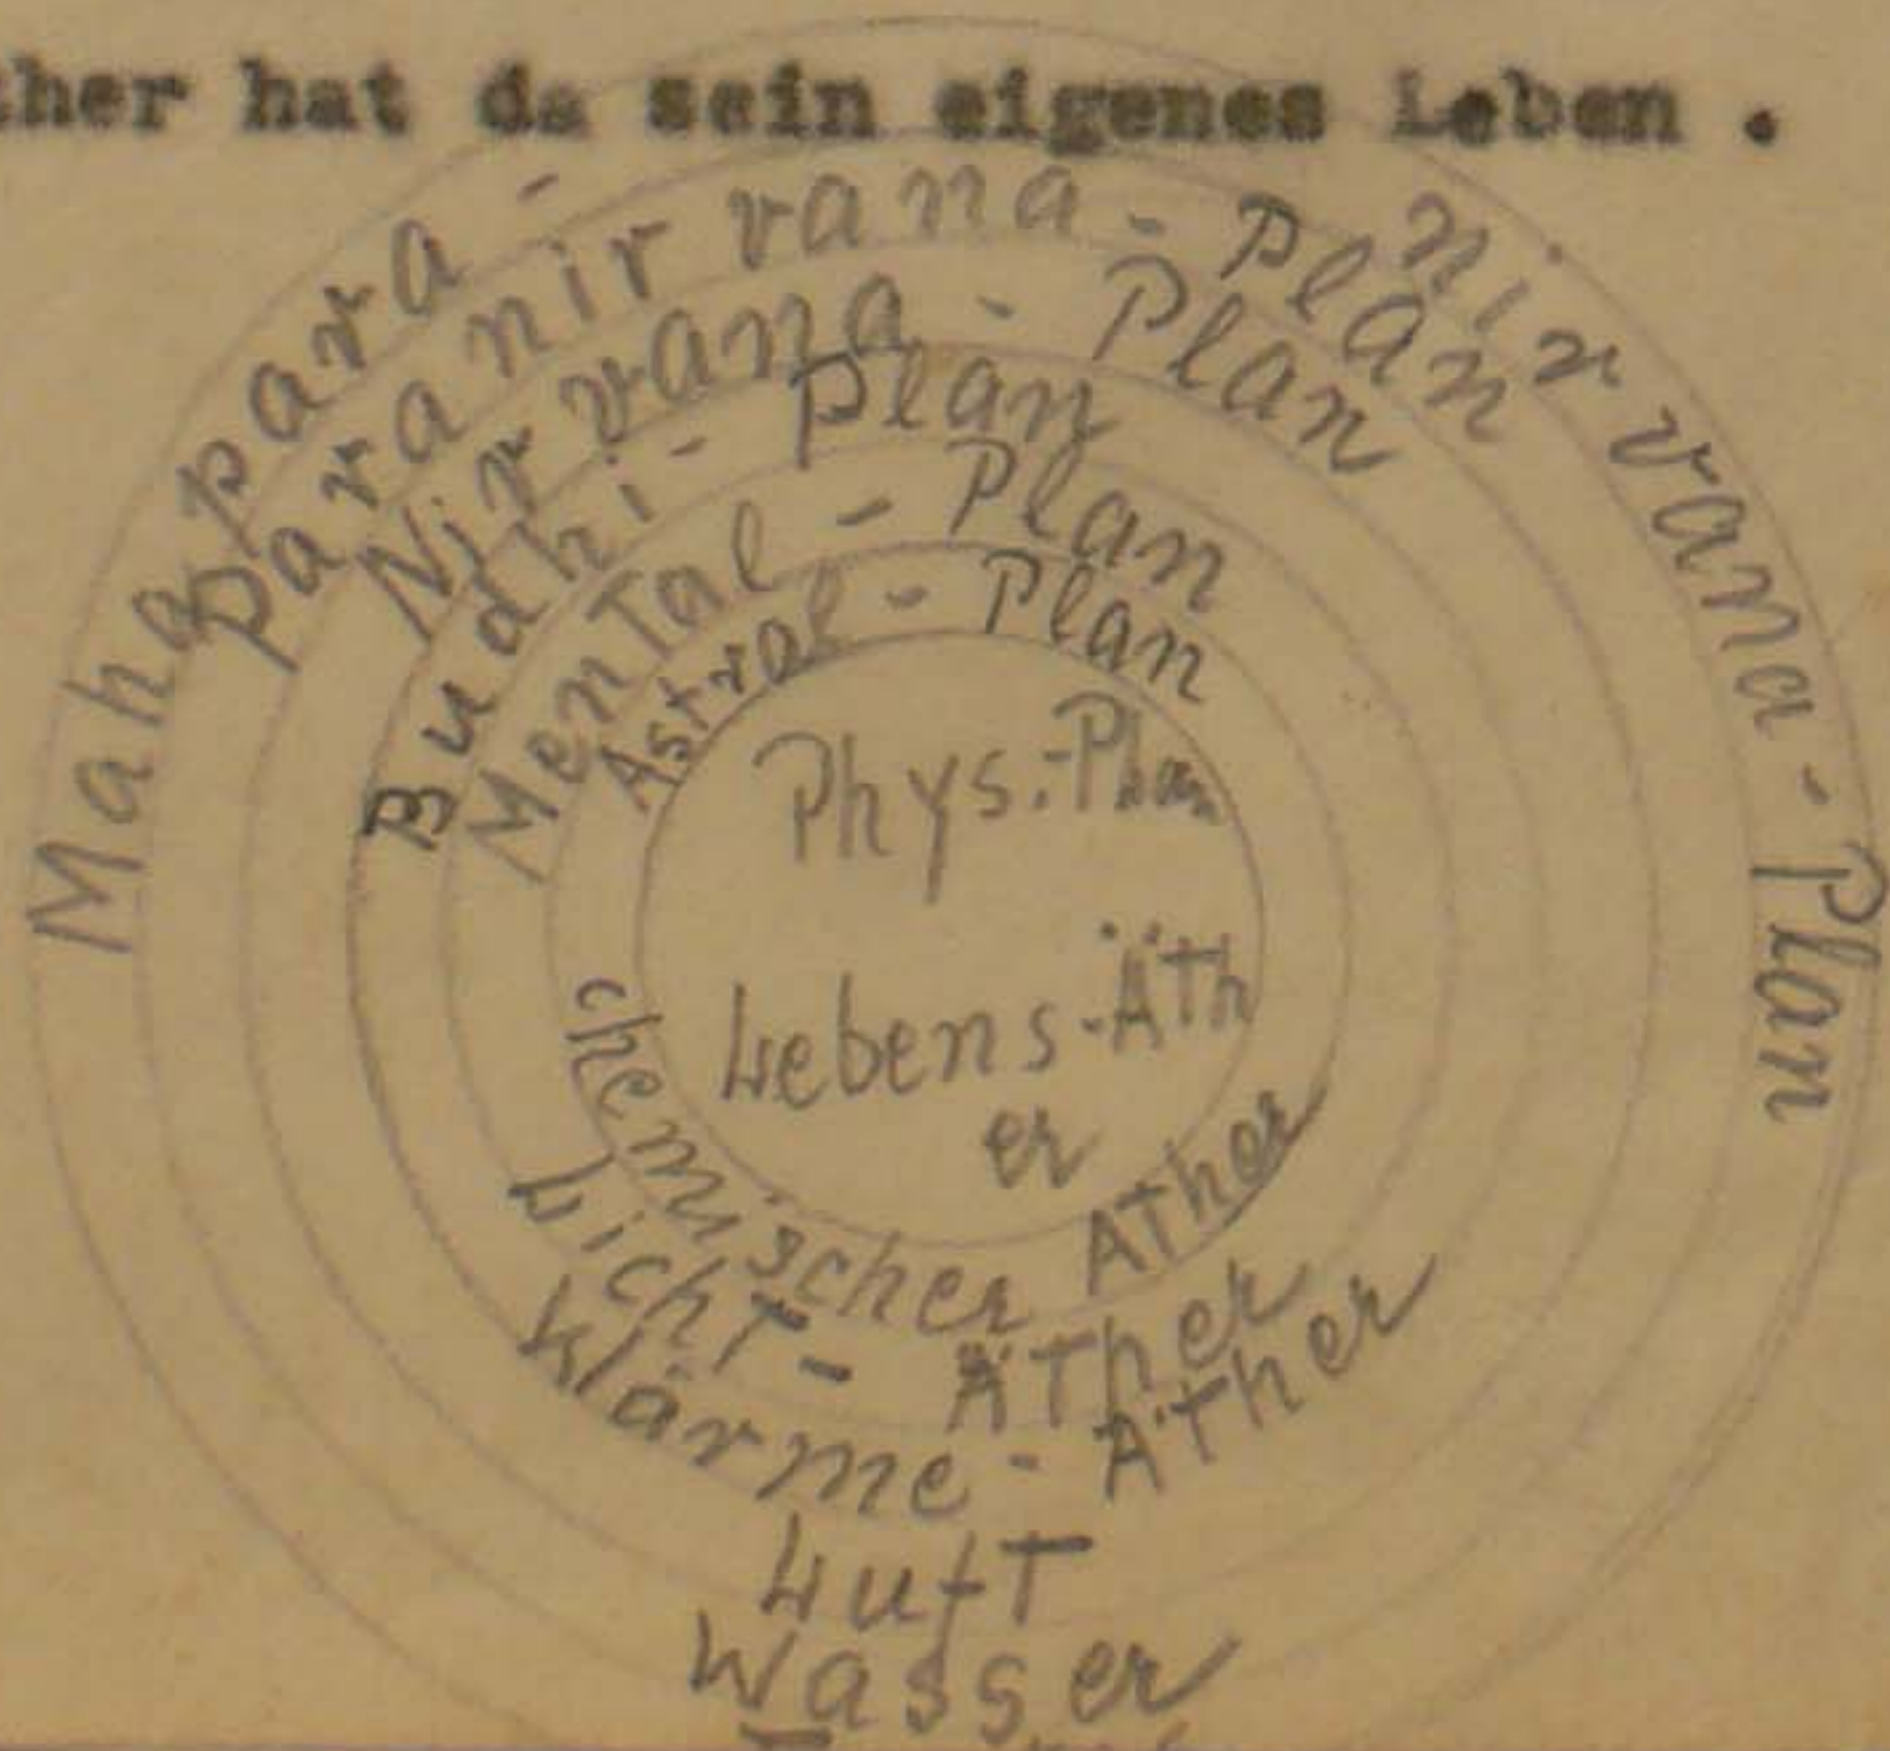 ther hat da sein eigenes Leben .
Mahapara - nirvana - Plan
Paranirvana - Plan
Nirvana - Plan
Budhi - Plan
Mental - Plan
Astral - Plan
Phys.-Plan
Lebens-Äth
er
chemischer Äther
Licht - Äther
Wärme - Äther
Luft
Wasser